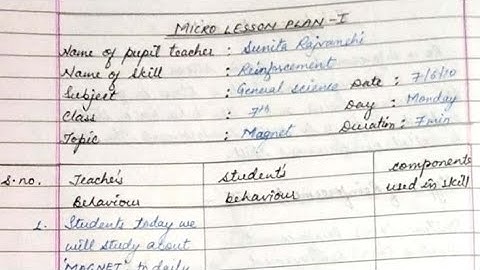 MICRO LESSON PLAN - I
Name of pupil teacher : Sunita Rajvanshi
Name of skill : Reinforcement
Subject : General science Date : 7/6/10
Class : 7th Day : Monday
Topic : Magnet Duration : 7 min
S.no. Teacher's Behaviour Student's behaviour components used in skill
1. Students today we
will study about
'MAGNET' In daily